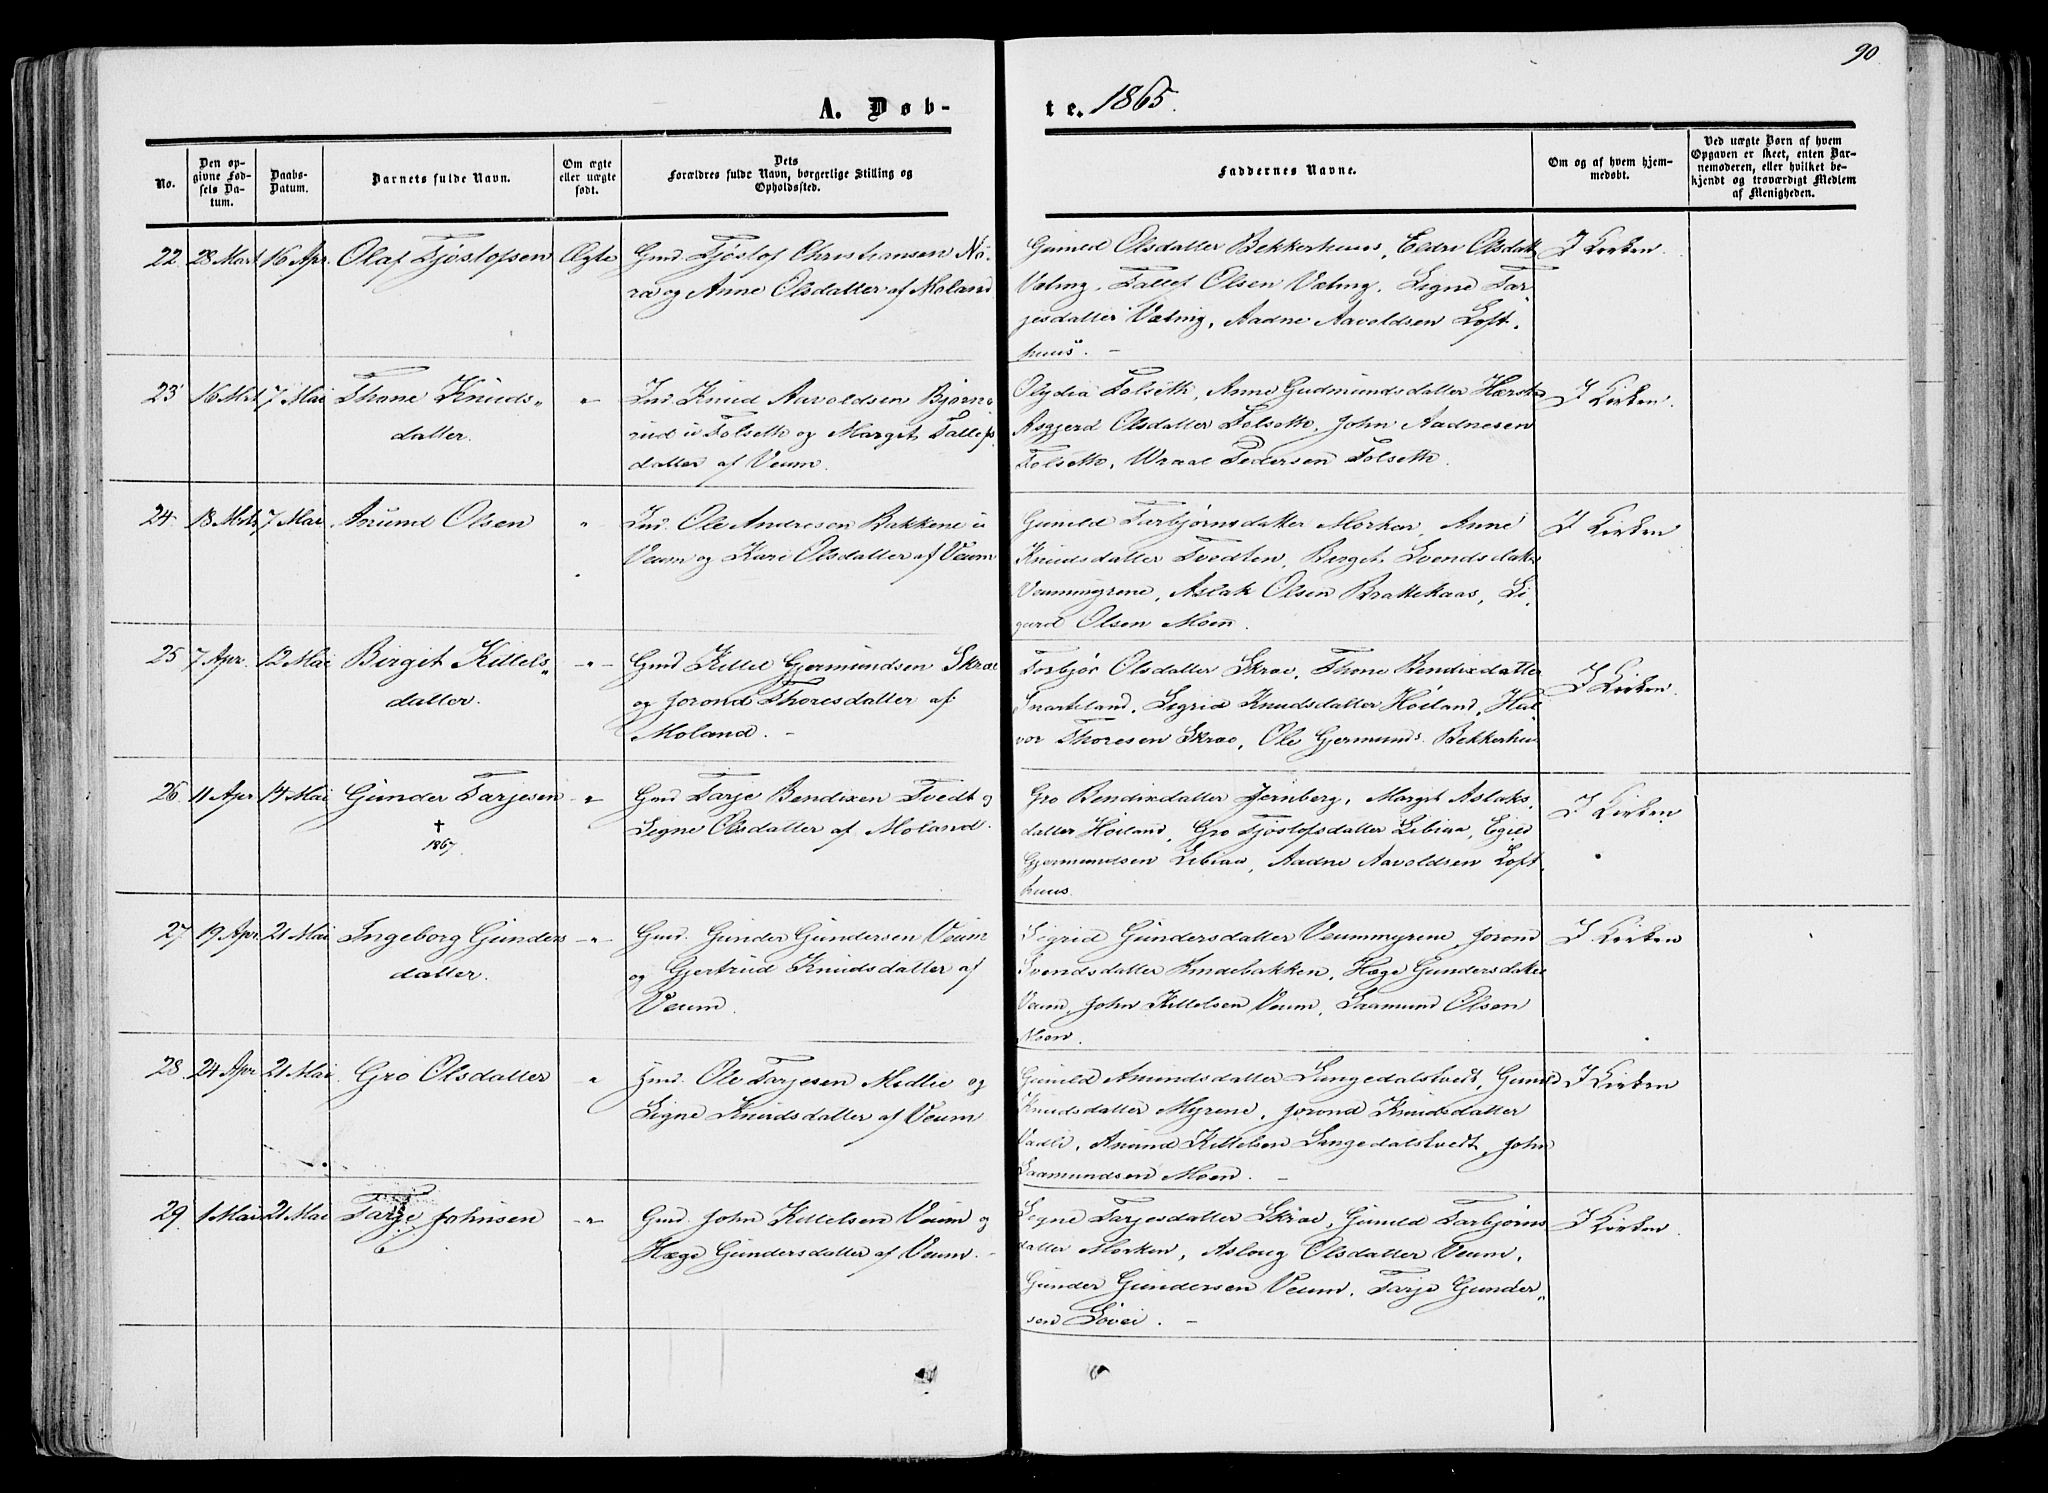 90
A. Døb-
te. 1865.
No.
Den op-
givne Fød-
sels Da-
tum.
Daabs-
Datum.
Barnets fulde Navn.
Om ægte
eller uægte
født.
Dets
Forældres fulde Navn, borgerlige Stilling og
Opholdssted.
Faddernes Navne.
Om og af hvem hjem-
medøbt.
Ved uægte Børn af hvem
Opgaven er skeet, enten Bar-
nemoderen, eller hvilket be-
kjendt og troværdigt Medlem
af Menigheden.
22. 28 Mart 16 Apr. Olaf Tjøstofsen Ægte
Gmd. Tjøstof Christiansen Nö-
ra og Anne Olsdatter af Moland
Gunild Olsdatter Bekkerhuus, Eldri Olsdatt
Væting, Tallef Olsen Væting, Signe Tar-
jesdatter Væting, Aadne Aavoldsen Loft-
huus. —
I Kirken.
23 16 Mrt 7 Mai Thone Knuds-
datter.
"
Ind. Knud Aavoldsen Bjørne
rud u Folseth og Margit Tallefs
datter af Veum.
Olydia Folseth, Anne Gudmundsdatter
Asgjerd Olsdatter Folseth, John Aadnesen
Folseth, Wraal Pedersen Folseth.
I Kirken.
24. 18 Mrts 7 Mai Anund Olsen "
Ind. Ole Andresen Bakkene u
Veum og Kari Olsdatter af Veum
Gunild Torbjørnsdatter Morker, Anne
Knudsdatter Tvedten, Birgit Svendsdatter
Veummyrene, Aslak Olsen Brattekaas, Si-
gurd Olsen Moen.
I Kirken
25 7 Apr. 12 Mai Birgit Kittels-
datter.
-"-
Gmd Kittil Gjermundsen Skræ
og Jorond Thoresdatter af
Moland. —
Torbjør Olsdatter Skræ, Thone Bendixdatter
Snarteland, Sigrid Knudsdatter Höiland, Hal
vor Thoresen Skræ, Ole Gjermunds. Bekkerhuu
I Kirken.
26. 11 Apr 14 Mai Gunder Tarjesen
†
1867.
-"-
Gmd Tarje Bendixen Tvedt og
Signe Olsdatter af Moland.
Gro Bendixdatter Jernberg, Margit Aslaks-
datter Höiland, Gro Tjøstofsdatter Libiaa, Egild
Gjermundsen Libiaa, Aadne Aavoldsen Loft-
huus.
I Kirken
27. 19 Apr. 21 Mai Ingeborg Gunders
datter.
-"-
Gmd. Gunder Gundersen Veum
og Gjertrud Knudsdatter af
Veum.
Sigrid Gundersdatter Veummyrene, Jorond
Svendsdatter Lindebakken, Hæge Gundersdatter
Veum, John Kittelsen Veum, Saamund Olsen
Moen.
I Kirken
28. 24 Apr 21 Mai. Gro Olsdatter "
Hmd. Ole Tarjesen Midlie og
Signe Knudsdatter af Veum
Gunild Anundsdatter Langedalstvedt, Gunild
Knudsdatter Myrene, Jorond Knudsdatter
Vadli, Anund Kittelsen Langedalstvedt, John
Saamundsen Moen. —
I Kirken
29. 1 Mai 21 Mai Tarje Johnsen -"-
Gmd. John Kittelsen Veum og
Hæge Gundersdatter af Veum. —
Signe Tarjesdatter Skræ, Gunild Torbjørns
datter Morken, Aslaug Olsdatter Veum,
Gunder Gundersen Veum, Tarje Gunder-
sen Lövei. —
I Kirken.